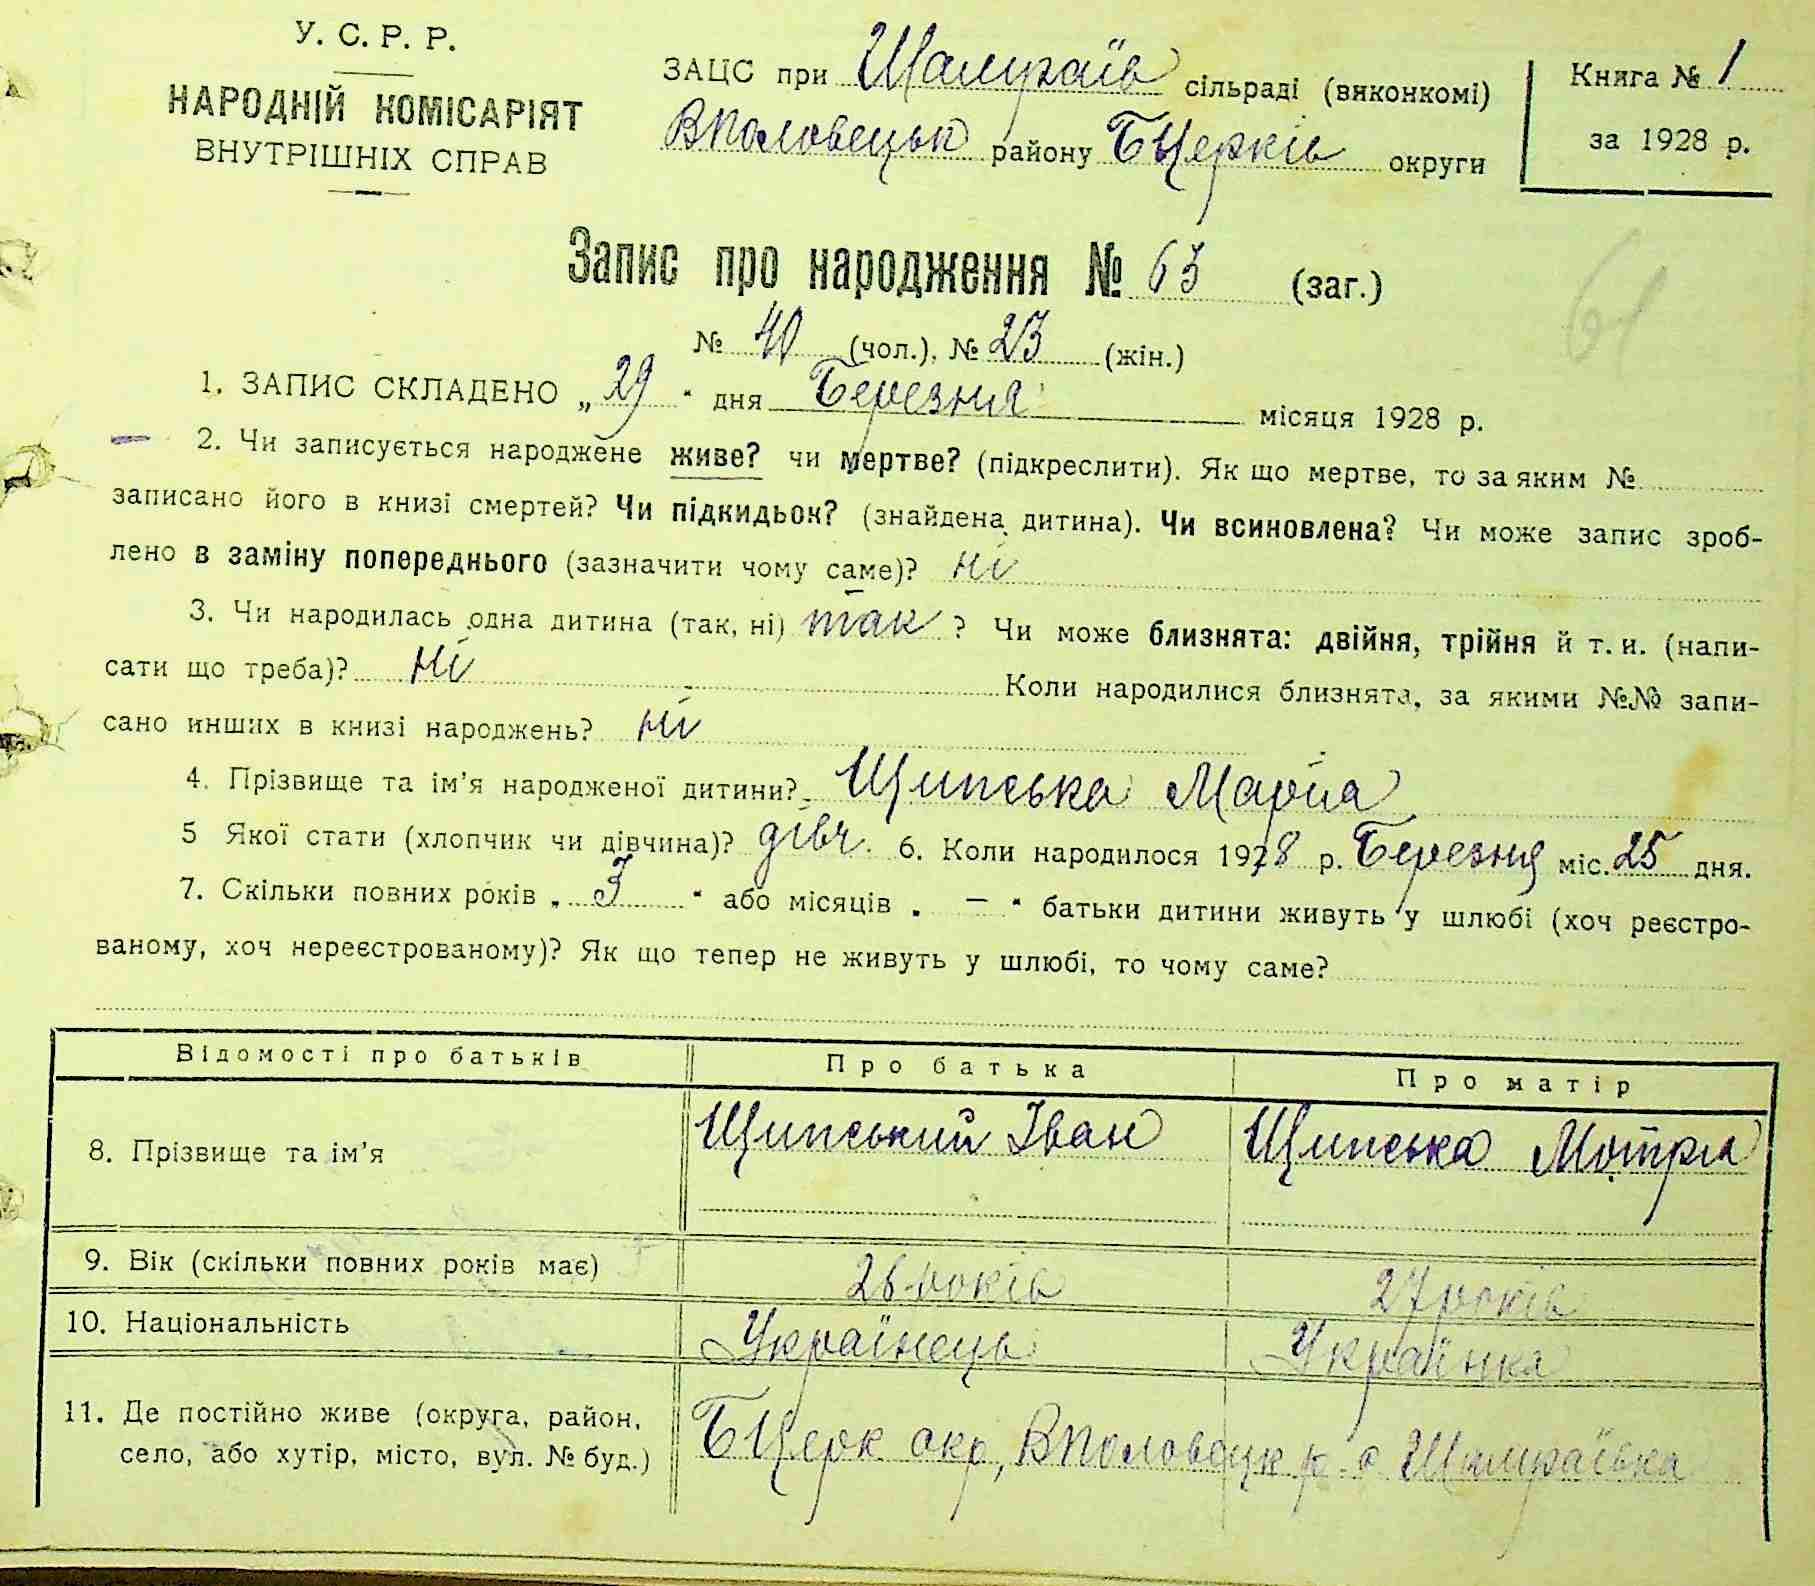 У. С. Р. Р.
НАРОДНІЙ КОМІСАРІЯТ
ВНУТРІШНІХ СПРАВ
ЗАЦС при Шамраїв сільраді (виконкомі)
ВПоловецьк району БЦерків округи
Книга № 1
за 1928 р.
Запис про народження № 63 (заг.)
61
№ 40 (чол.), № 23 (жін.)
1. ЗАПИС СКЛАДЕНО „ 29 “ дня Березня місяця 1928 р.
2. Чи записується народжене живе? чи мертве? (підкреслити). Як що мертве, то за яким №
записано його в книзі смертей? Чи підкидьок? (знайдена дитина). Чи всиновлена? Чи може запис зроб-
лено в заміну попереднього (зазначити чому саме)? ні
3. Чи народилась одна дитина (так, ні) так ? Чи може близнята: двійня, трійня й т. и. (напи-
сати що треба)? ні Коли народилися близнята, за якими №№ запи-
сано инших в книзі народжень? ні
4. Прізвище та ім’я народженої дитини? Щипська Марія
5 Якої стати (хлопчик чи дівчина)? дівч. 6. Коли народилося 1928 р. Березня міс. 25 дня.
7. Скільки повних років „ 3 “ або місяців „ — “ батьки дитини живуть у шлюбі (хоч реєстро-
ваному, хоч нереєстрованому)? Як що тепер не живуть у шлюбі, то чому саме?
Відомості про батьків Про батька Про матір
8. Прізвище та ім’я Щипський Іван Щипська Мотря
9. Вік (скільки повних років має) 26 років 27 років
10. Національність Українець Українка
11. Де постійно живе (округа, район,
село, або хутір, місто, вул. № буд.) БЦерк окр, ВПоловецк р. с Шамраївка